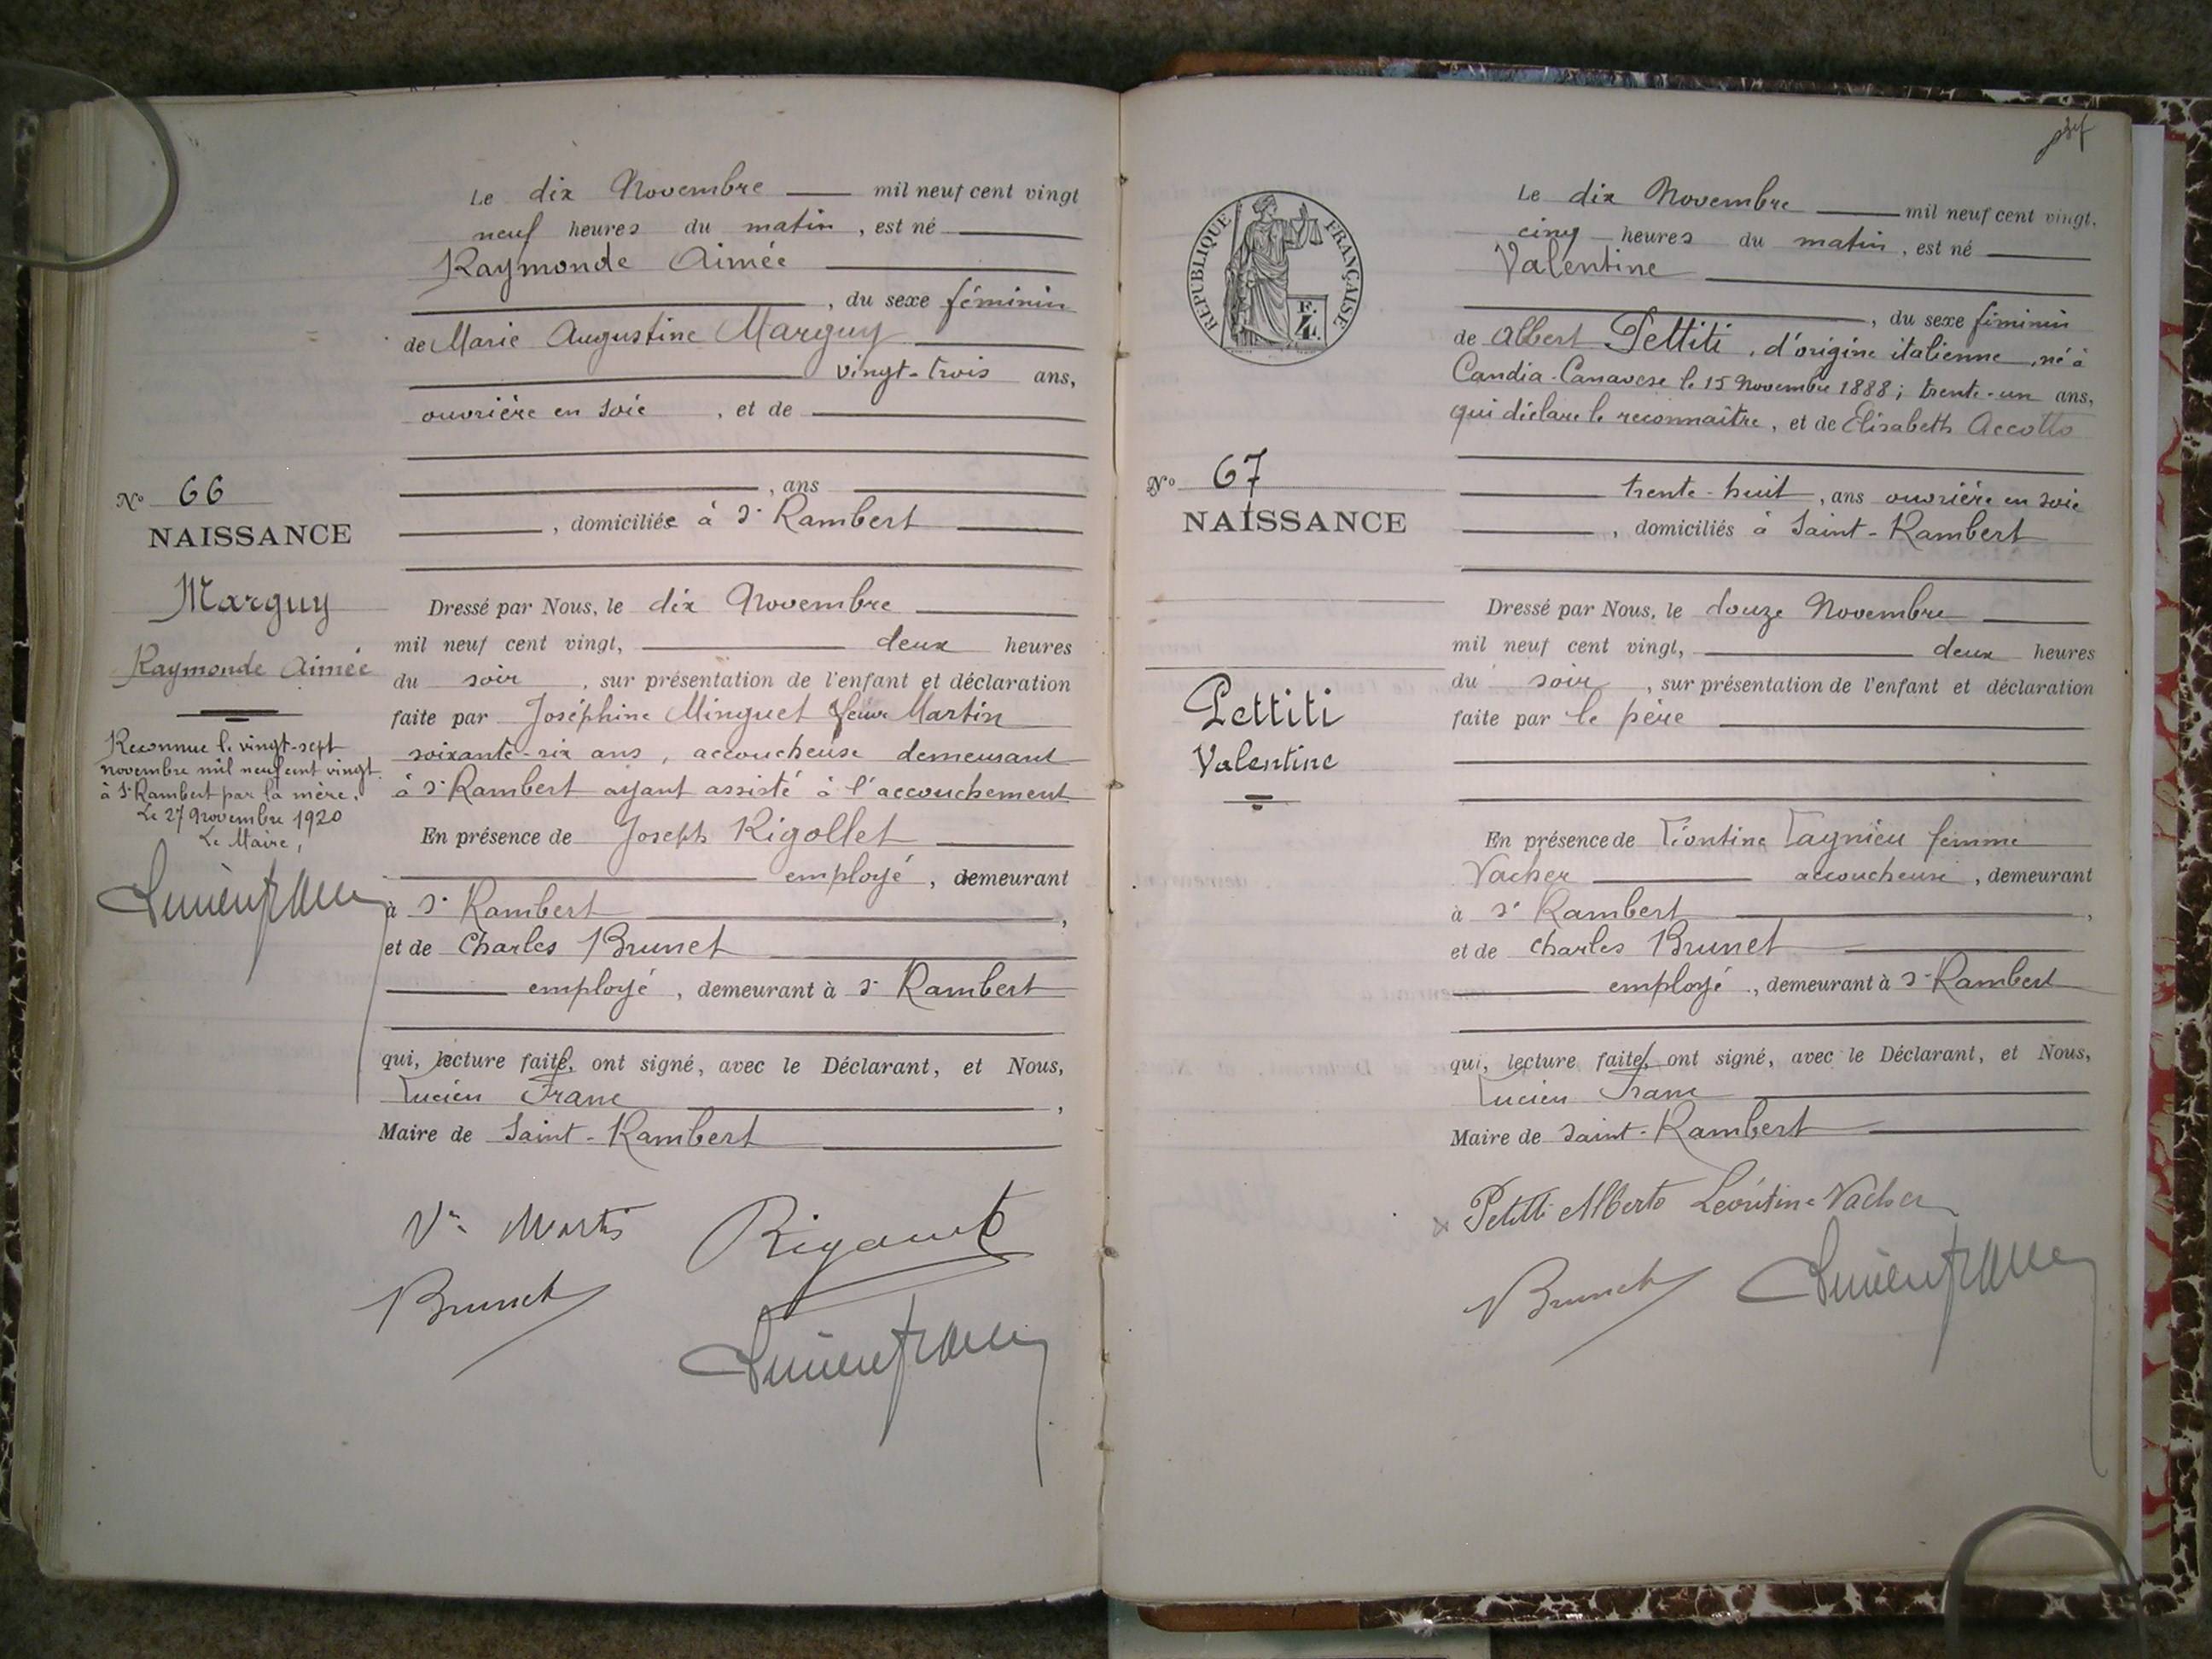 Le dix Novembre mil neuf cent vingt
neuf heures du matin, est né
Raymonde Aimée
, du sexe féminin
de Marie Augustine Marguy
vingt-trois ans,
ouvrière en soie, et de
, ans
, domiciliée à St Rambert
No 66
NAISSANCE
Marguy
Raymonde Aimée
Reconnue le vingt-sept
novembre mil neuf cent vingt
à St Rambert par la mère.
Le 27 Novembre 1920
Le Maire,
Lucien Franc
Dressé par Nous, le dix Novembre
mil neuf cent vingt, deux heures
du soir, sur présentation de l'enfant et déclaration
faite par Joséphine Minguet Veuve Martin
soixante-six ans, accoucheuse demeurant
à St Rambert ayant assisté à l'accouchement
En présence de Joseph Rigollet
employé, demeurant
à St Rambert,
et de Charles Brunet
employé, demeurant à St Rambert
qui, lecture faite, ont signé, avec le Déclarant, et Nous,
Lucien Franc,
Maire de Saint-Rambert
Ve Martin
Brunet
Lucien Franc
RÉPUBLIQUE FRANÇAISE
F.
4.
Le dix Novembre mil neuf cent vingt,
cinq heures du matin, est né
Valentine
, du sexe féminin
de Albert Pettiti, d'origine italienne, né à
Candia-Canavese le 15 Novembre 1888; trente-un ans,
qui déclare le reconnaître, et de Elisabeth Accotto
trente-huit, ans ouvrière en soie
, domiciliés à Saint-Rambert
No 67
NAISSANCE
Pettiti
Valentine
Dressé par Nous, le douze Novembre
mil neuf cent vingt, deux heures
du soir, sur présentation de l'enfant et déclaration
faite par le père
En présence de Léontine Lagnieu femme
Vacher accoucheuse, demeurant
à St Rambert,
et de Charles Brunet
employé, demeurant à St Rambert
qui, lecture faite, ont signé, avec le Déclarant, et Nous,
Lucien Franc
Maire de Saint-Rambert
Petitti Alberto Léontine Vacher
Brunet
Lucien Franc